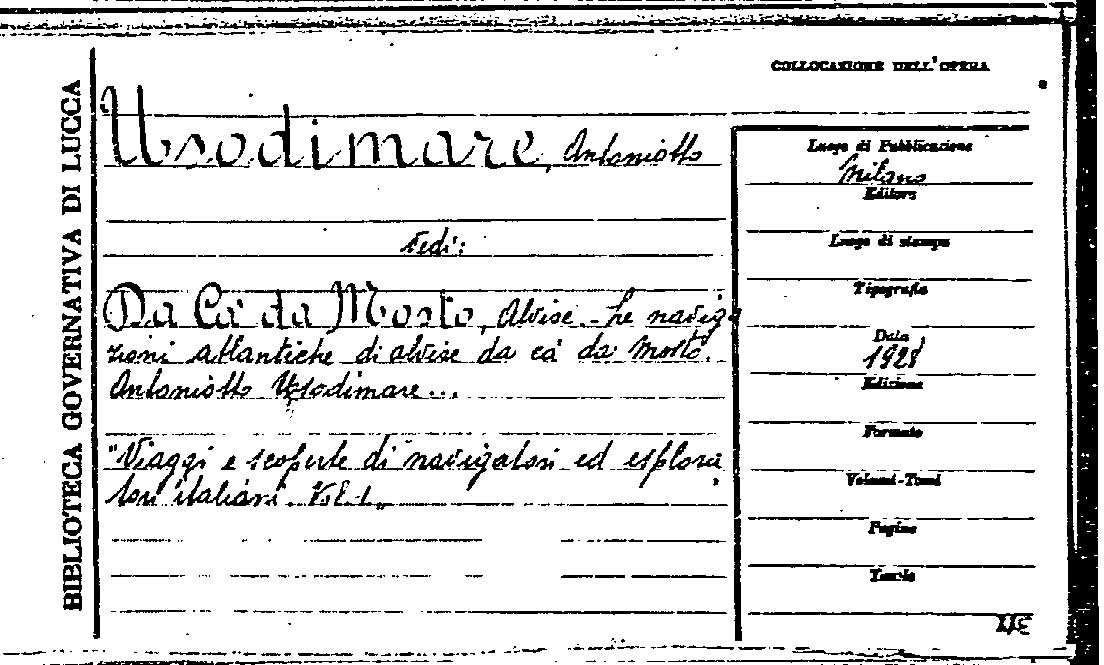 BIBLIOTECA GOVERNATIVA DI LUCCA
COLLOCAZIONE DELL'OPERA
Usodimare, Antoniotto
Vedi:
Da Ca' da Mosto, Alvise. - Le naviga
zioni atlantiche di alvise da ca' da Mosto.
Antoniotto Usodimare...
"Viaggi e scoperte di navigatori ed esplora
tori italiani. Vol. 1„
Luogo di Pubblicazione
Milano
Editore
Luogo di stampa
Tipografia
Data
1928
Edizione
Formato
Volumi-Tomi
Pagine
Tavole